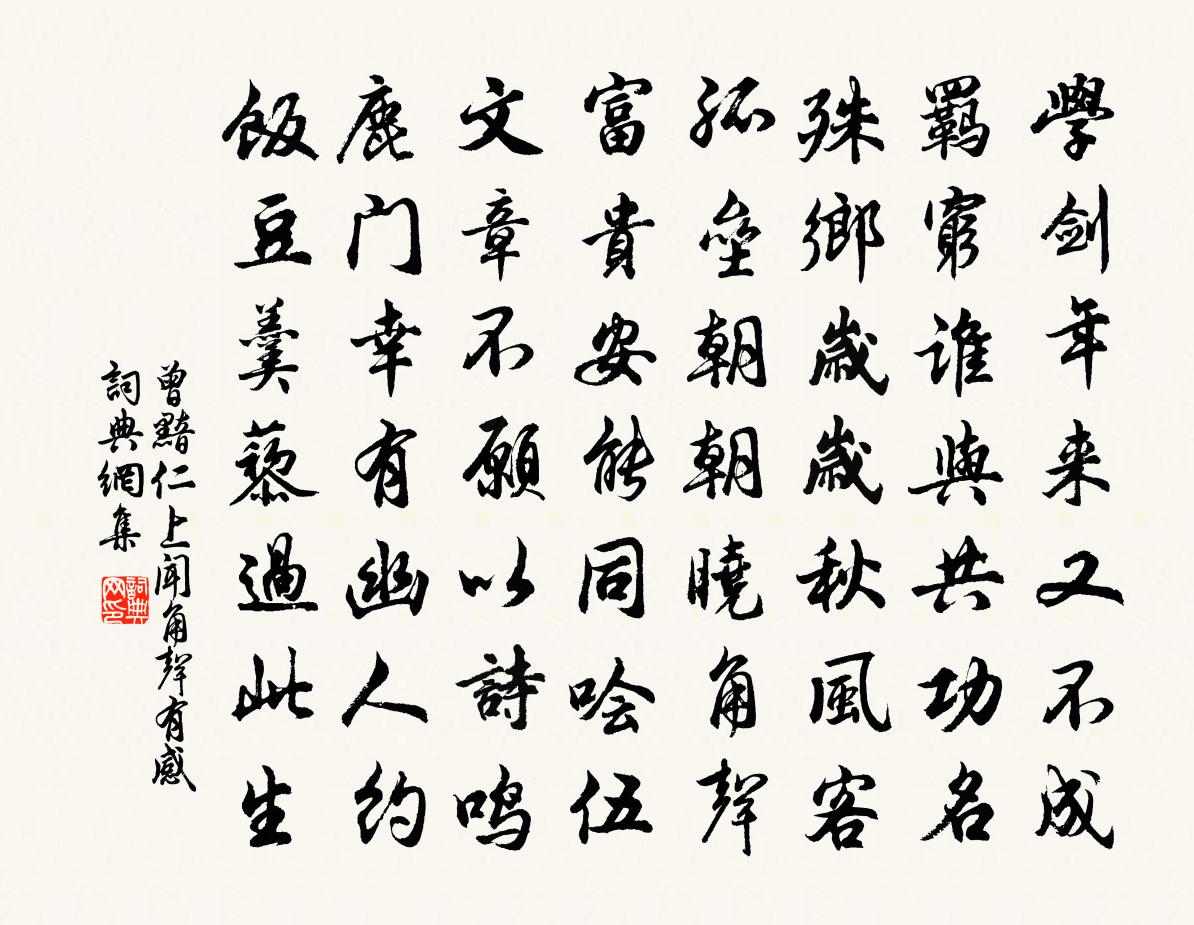 學剑年来又不成
羇窮谁與共功名
殊鄉歲歲秋風客
孤壘朝朝曉角聲
富貴安能同哙伍
文章不願以詩鸣
鹿门幸有幽人约
飯豆羹藜過此生
曾黯仁上闻角聲有感
詞典網集
詞典网印